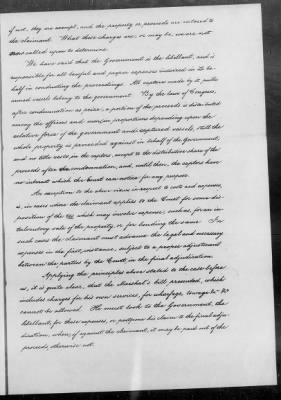 if not, they are exempt, and the property or proceeds are restored to
the claimant. What these charges are, or may be, we are not
now called upon to determine.
We have said that the Government is the libellant, and is
responsible for all lawful and proper expenses incurred in its be-
half in conducting the proceedings. All captures made by its public
armed vessels belong to the government. By the laws of Congress,
after condemnation as prize, a portion of the proceeds is distributed
among the officers and marines, proportions depending upon the
relative force of the government and captured vessels, still the
whole property is proceeded against in behalf of the Government,
and no title vests in the captors, except to the distributive share of the
proceeds after condemnation, and, until then, the captors have
no interest which the Court can notice for any purpose.
An exception to the above views in respect to costs and expenses,
is, in cases where the claimant applies to the Court for some dis-
position of the which may involve expense; such as, for an in-
terlocutory sale of the property, or for bonding the same. In
such cases the claimant must advance the legal and necessary
expenses in the first instance, subject to a proper adjustment
between the parties by the Court, in the final adjudication.
Applying the principles above stated to the case before
us, it is quite clear, that the Marshal's bill presented, which
includes charges for his own services, for wharfage, towage &c &c
cannot be allowed. He must look to the Government, the
libellant, for these expenses, or postpone his claim to the final adju-
dication, when, if against the claimant, it may be paid out of the
proceeds, otherwise not.